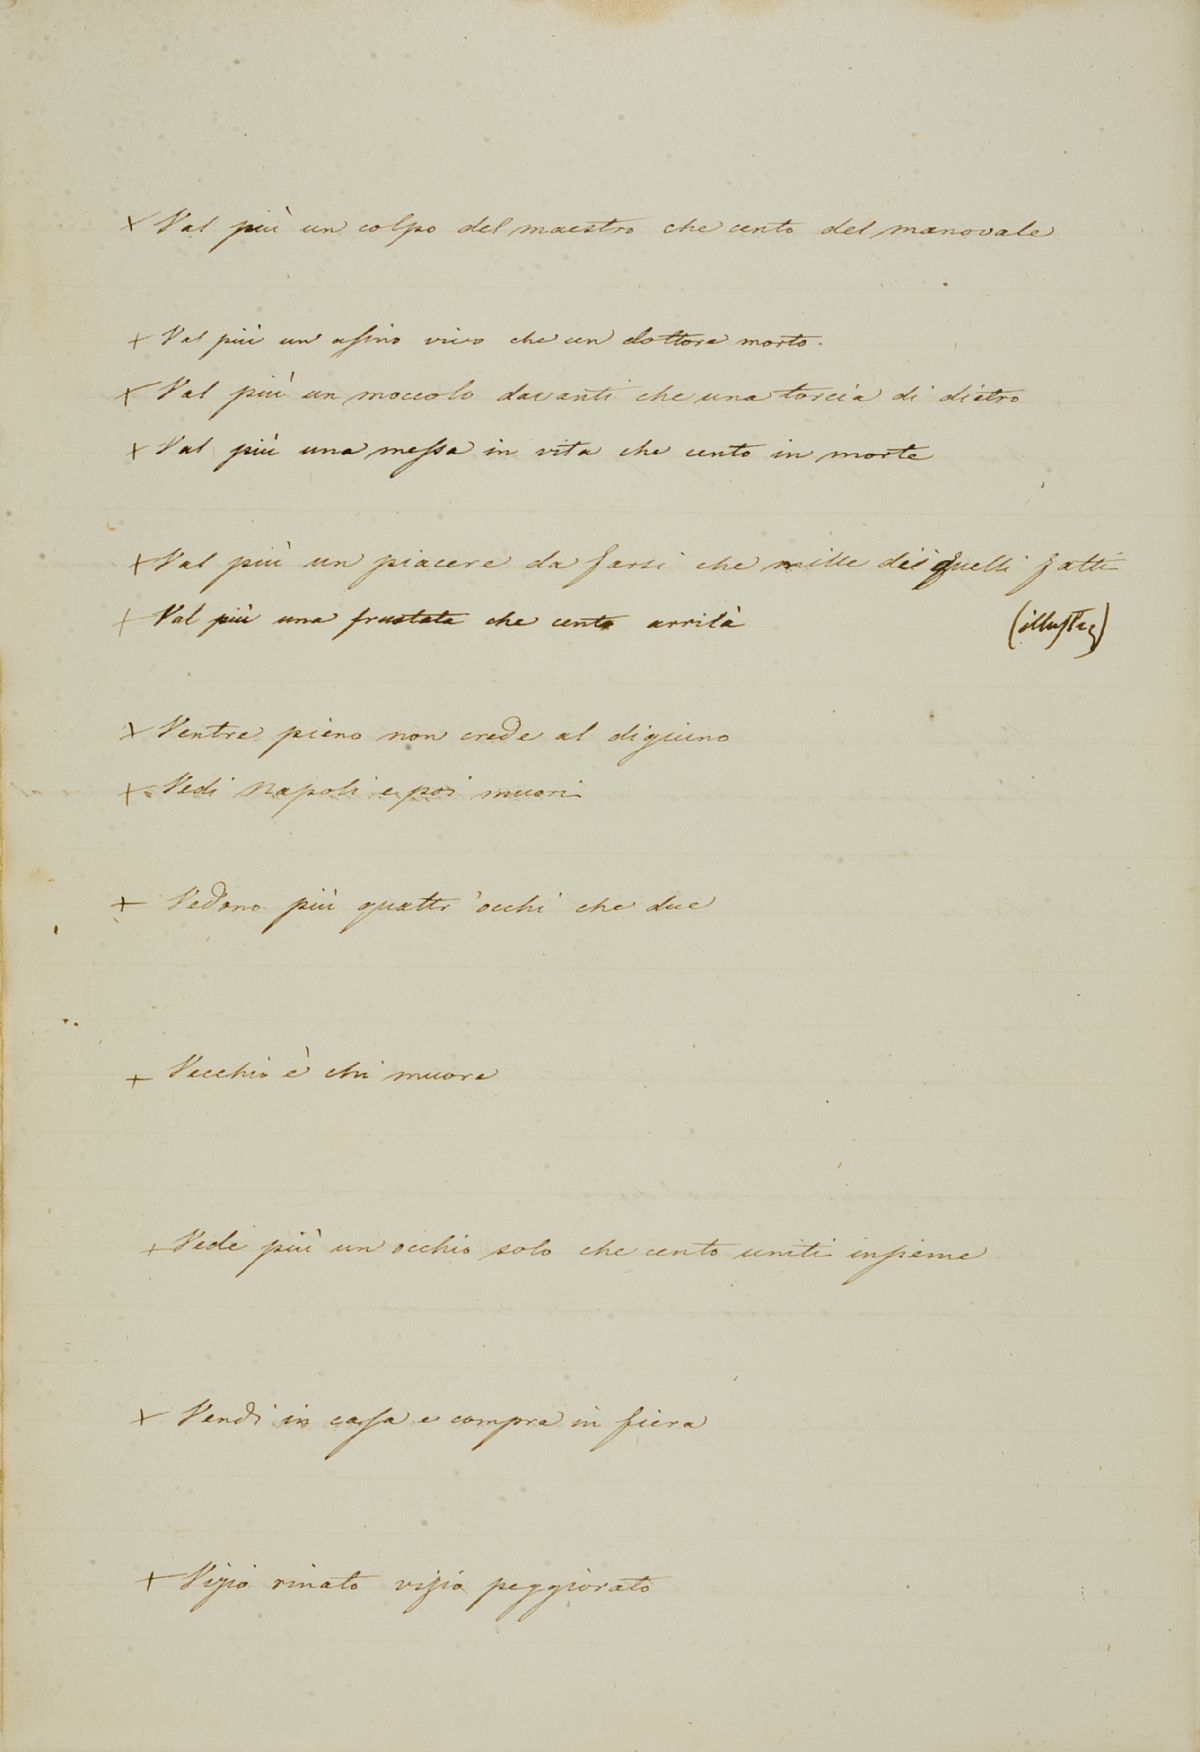 + Val più un colpo del maestro che cento del manovale
+ Val più un asino vivo che un dottore morto.
+ Val più un moccolo davanti che una torcia di dietro
+ Val più una messa in vita che cento in morte
+ Val più un piacere da farsi che mille di quelli fatti
+ Val più una frustata che cento arrilà
+ Ventre pieno non crede al digiuno
+ Vedi Napoli e poi muori
+ Vedono più quattr'occhi che due
+ Vecchio è chi muore
+ Vede più un occhio solo che cento uniti insieme
+ Vendi in casa e compra in fiera
+ Vizio rinato vizio peggiorato